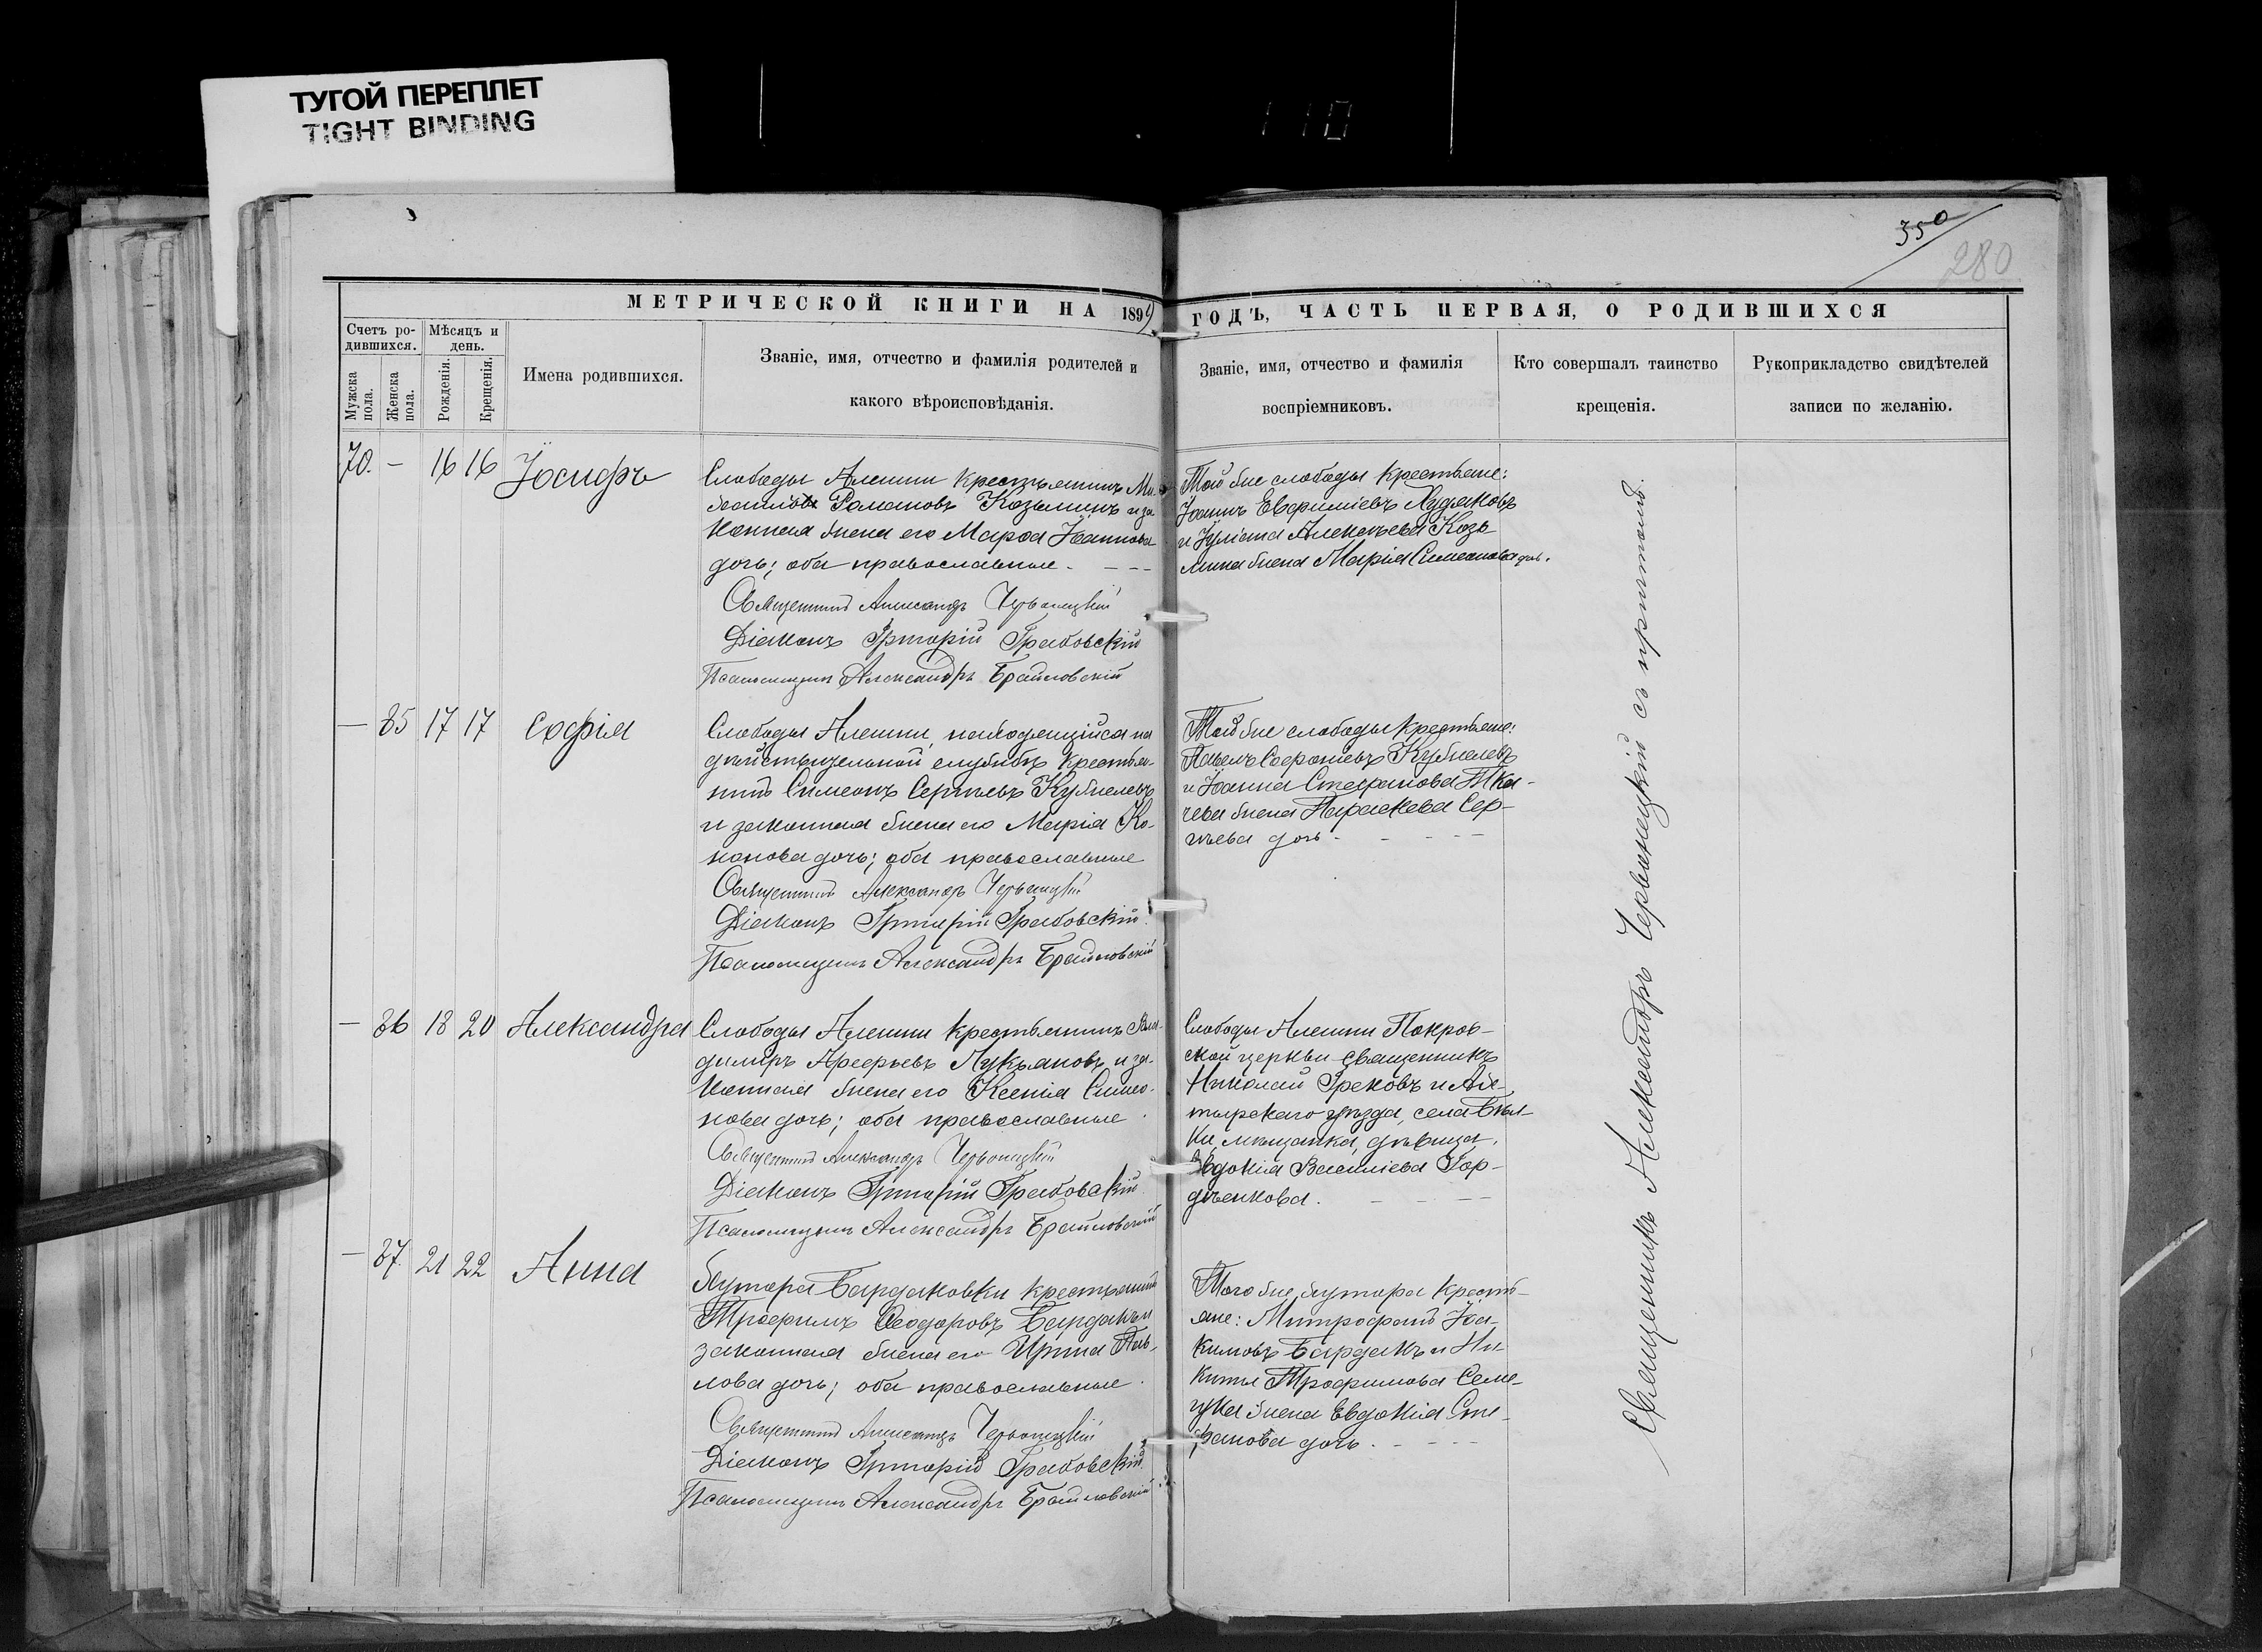 ТУГОЙ ПЕРЕПЛЕТ
TIGHT BINDING
110
350
280
МЕТРИЧЕСКОЙ КНИГИ НА 189
ГОДЪ, ЧАСТЬ ПЕРВАЯ, О РОДИВШИХСЯ
Счетъ ро-
дившихся.
Мѣсяцъ и
день.
Мужска
пола.
Женска
пола.
Рожденія.
Крещенія.
Имена родившихся.
Званіе, имя, отчество и фамилія родителей и
какого вѣроисповѣданія.
Званіе, имя, отчество и фамилія
воспріемниковъ.
Кто совершалъ таинство
крещенія.
Рукоприкладство свидѣтелей
записи по желанію.
70. – 16 16 Іосифъ
Слободы Алешни крестьянинъ Ми-
Романовъ Козьминъ и за-
конная жена его Марѳа Іоаннова
дочь; оба православные. – – –
Священникъ Александръ Червонецкій
Діаконъ Григорій Грабовскій
Псаломщикъ Александръ Брайловскій
Той же слободы крестьяне:
Іоаннъ Евфиміевъ Худяковъ
и Іуліана Алексѣева Козь-
мина жена Марія Симеонова доч.
– 85 17 17 Софія
Слободы Алешни, находящійся на
дѣйствительной службѣ крестья-
нинъ Симеонъ Сергѣевъ Кубелевъ
и законная жена его Марія Ко-
нонова дочь; оба православные
Священникъ Александръ Червонецкій
Діаконъ Григорій Грабовскій
Псаломщикъ Александръ Брайловскій
Той же слободы крестьяне:
Павелъ Кубелевъ
и Іоанна Стефанова Тка-
чева жена Параскева Сер-
гѣева дочь. – – – –
– 86 18 20 Александра
Слободы Алешни крестьянинъ Вла-
димиръ Арсеньевъ Лукьяновъ и за-
конная жена его Ксенія Симео-
нова дочь; оба православные.
Священникъ Александръ Червонецкій
Діаконъ Григорій Грабовскій
Псаломщикъ Александръ Брайловскій
Слободы Алешни Покров-
ской церкви священникъ
Николай Грековъ и Ах-
тырскаго уѣзда, села Бѣл-
ки мѣщанка, дѣвица,
Евдокія Василіева Гор-
дѣенкова. – – – –
– 87. 21 22 Анна
Хутора Бардаковки крестьянинъ
Трофимъ Ѳеодоровъ Бардакъ и
законная жена его Ирина Пав-
лова дочь; оба православные.
Священникъ Александръ Червонецкій
Діаконъ Григорій Грабовскій
Псаломщикъ Александръ Брайловскій
Того же хутора кресть-
яне: Митрофанъ Іоа-
кимовъ Бардакъ и Ни-
киты Трофимова Семе-
жена Евдокія Сте-
фанова дочь. – – – –
Священникъ Александръ Червонецкій съ причтомъ.